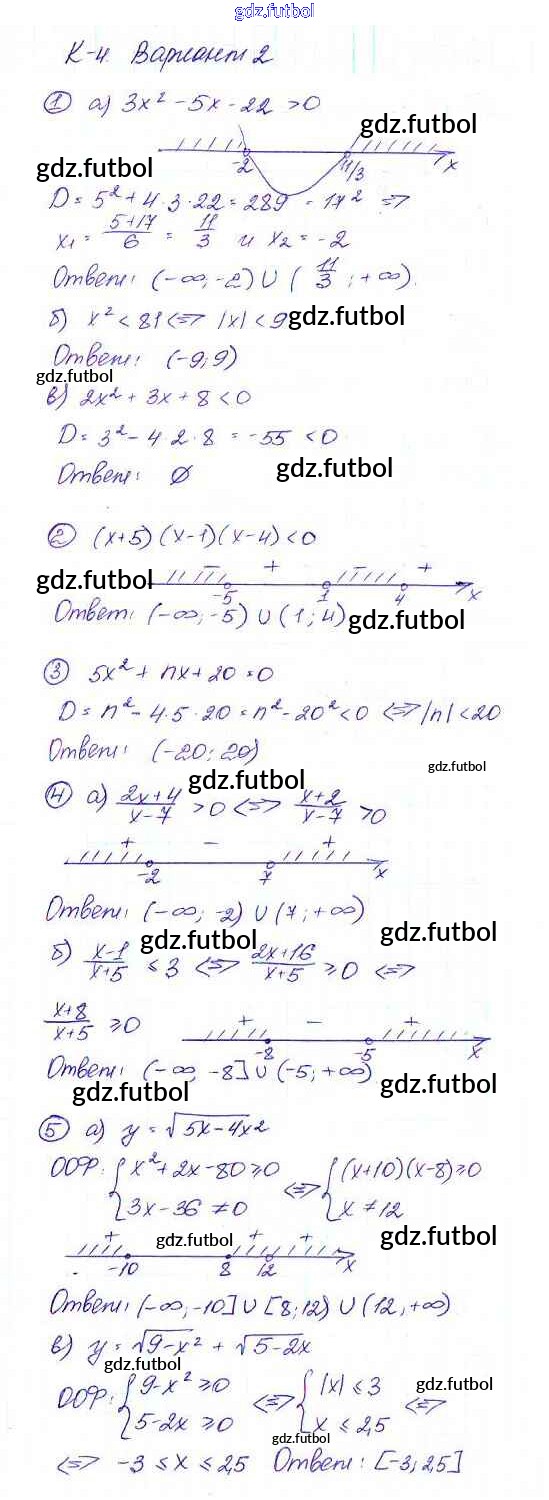 gdz.futbol
gdz.futbol
К-4. Вариант 2
① а) 3x² - 5x - 22 > 0
gdz.futbol
gdz.futbol
-2 11/3 x
D = 5² + 4·3·22 = 289 = 17² =>
x₁ = (5+17)/6 = 11/3 и x₂ = -2
Ответ: (-∞; -2) ∪ (11/3; +∞).
б) x² < 81 <=> |x| < 9 gdz.futbol
Ответ: (-9; 9)
gdz.futbol
в) 2x² + 3x + 8 < 0
D = 3² - 4·2·8 = -55 < 0
Ответ: ∅ gdz.futbol
② (x+5)(x-1)(x-4) < 0
gdz.futbol - + - +
-5 1 4 x
Ответ: (-∞; -5) ∪ (1; 4) gdz.futbol
③ 5x² + nx + 20 = 0
D = n² - 4·5·20 = n² - 20² < 0 <=> |n| < 20
Ответ: (-20; 20)
gdz.futbol
gdz.futbol
④ а) (2x+4)/(x-7) > 0 <=> (x+2)/(x-7) > 0
+ - +
-2 7 x
Ответ: (-∞; -2) ∪ (7; +∞)
gdz.futbol gdz.futbol
б) (x-1)/(x+5) ≤ 3 <=> (2x+16)/(x+5) ≥ 0 <=>
(x+8)/(x+5) ≥ 0
+ - +
-8 -5 x
Ответ: (-∞; -8] ∪ (-5; +∞)
gdz.futbol gdz.futbol
⑤ а) y = √(5x-4x2
ООФ: { x² + 2x - 80 ≥ 0 <=> { (x+10)(x-8) ≥ 0
{ 3x - 36 ≠ 0 { x ≠ 12
gdz.futbol
+ gdz.futbol + +
-10 8 12 x
Ответ: (-∞; -10] ∪ [8; 12) ∪ (12; +∞)
в) y = √(9-x² + √(5-2x
gdz.futbol
ООФ: { 9 - x² ≥ 0 <=> { |x| ≤ 3 <=>
{ 5 - 2x ≥ 0 { x ≤ 2,5
gdz.futbol
gdz.futbol
<=> -3 ≤ x ≤ 2,5 Ответ: [-3; 2,5]